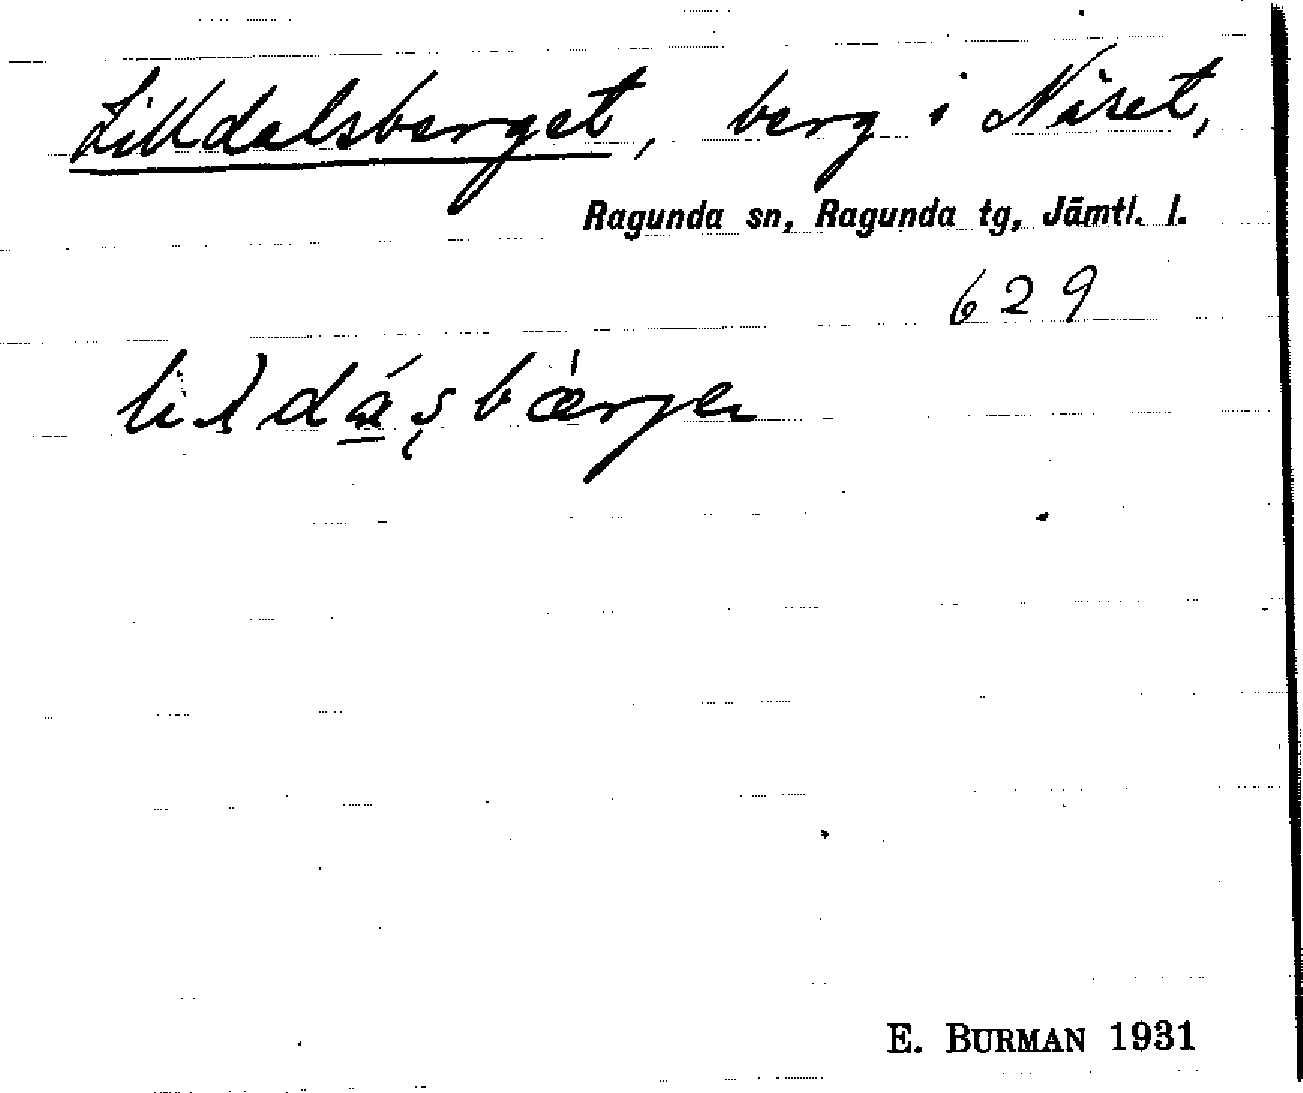 Lilldalsberget, berg i Näset,
Ragunda sn, Ragunda tg, Jämtl. l.
629
E. BURMAN 1931